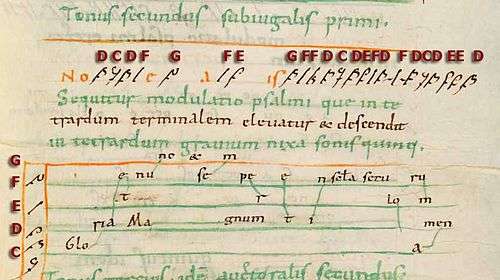 Tonus secundus subiugalis primi.
DCDF G FE GFFD C DEFD F DCD EE D
No e a is
Sequitur modulatio psalmi que in te
trardum terminalem elevatur & descendit
in tetrardum gravium nixa sonis quinq;.
G ne & m
F e nu se pe e n sęla secu ru
E t r lo m
D ria Ma gnum t i men
C Glo a
Tonus secundus